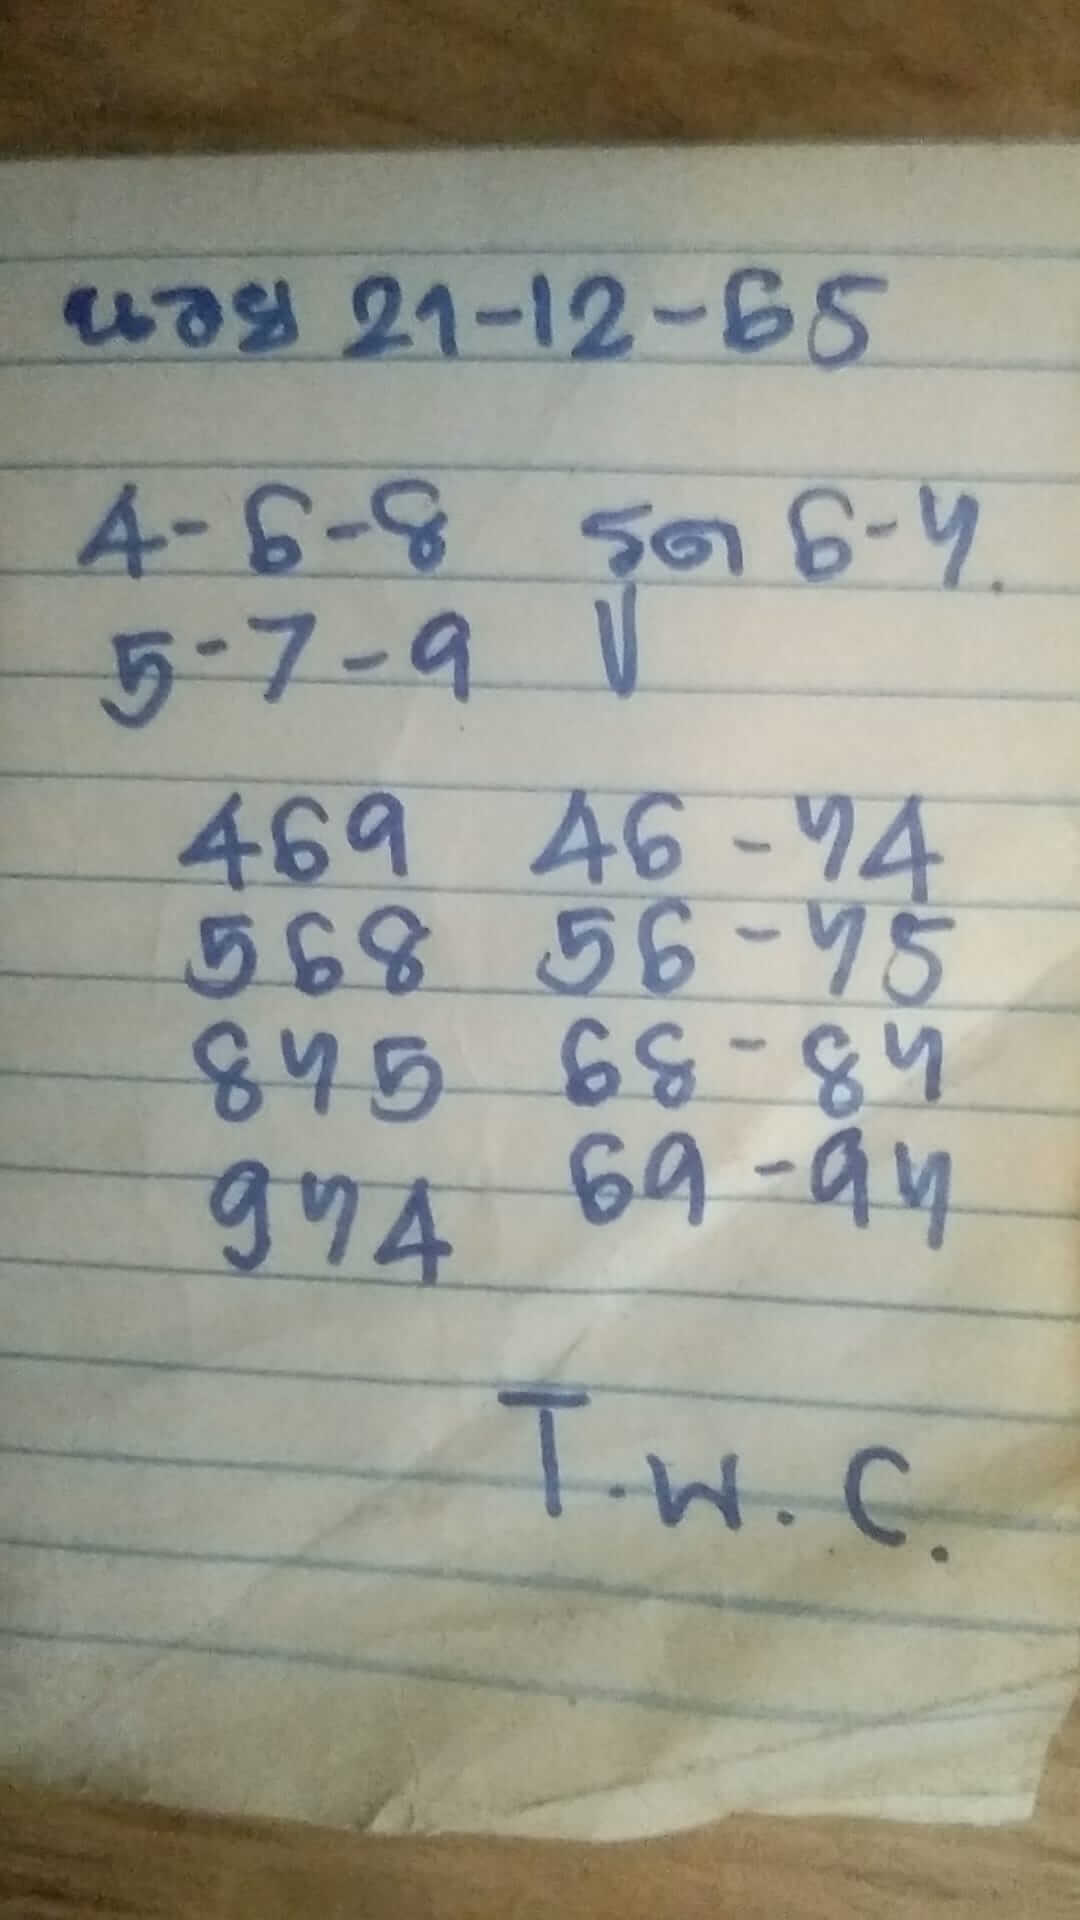 นอย 21-12-65
4-6-8 รูด 6-7.
5-7-9 ||
469 46-74
568 56-75
875 68-87
974 69-97
T.W.C.